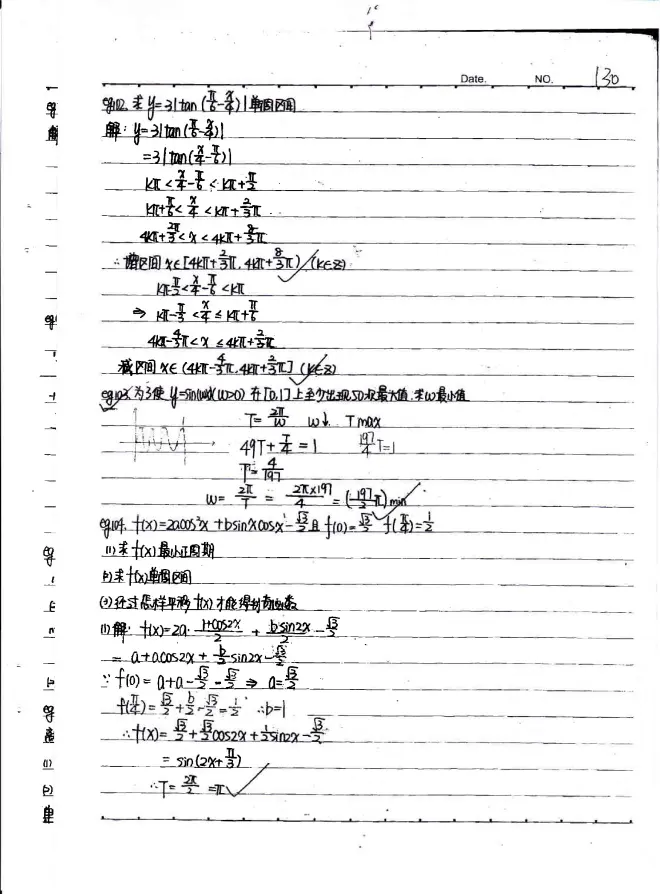 Date. NO. 130
eg102. 求 y=3|tan(π/6-x/4)|单调区间
解: y=3|tan(π/6-x/4)|
=3|tan(x/4-π/6)|
kπ<x/4-π/6<kπ+π/2
kπ+π/6<x/4<kπ+2/3π
4kπ+2π/3<x<4kπ+8/3π
∴增区间 x∈[4kπ+2/3π, 4kπ+8/3π) (k∈Z)
kπ-π/2<x/4-π/6<kπ
⇒ kπ-π/3<x/4≤kπ+π/6
4kπ-4/3π<x≤4kπ+2/3π
减区间 x∈(4kπ-4/3π, 4kπ+2/3π] (k∈Z)
eg103. 为了使 y=sinωx(ω>0) 在[0,1]上至少出现50次最大值, 求ω最小值
T=2π/ω ω↓ Tmax
49T+T/4=1 197/4T=1
T=4/197
ω=2π/T=2π×197/4=(197/2π)min
eg104. f(x)=2acos²x+bsinxcosx-√3/2且f(0)=√3/2 f(π/4)=1/2
(1)求f(x)最小正周期
(2)求f(x)单调区间
(3)经过怎样平移f(x)才能得到奇函数
(1)解: f(x)=2a·1+cos2x/2+bsin2x/2-√3/2
=a+acos2x+b/2sin2x-√3/2
∵f(0)=a+a-√3/2=√3/2 ⇒ a=√3/2
f(π/4)=√3/2+b/2-√3/2=1/2 ∴b=1
∴f(x)=√3/2+√3/2cos2x+1/2sin2x-√3/2
=sin(2x+π/3)
∴T=2π/2=π
eg
解
eg
eg
eg
(1)
(2)